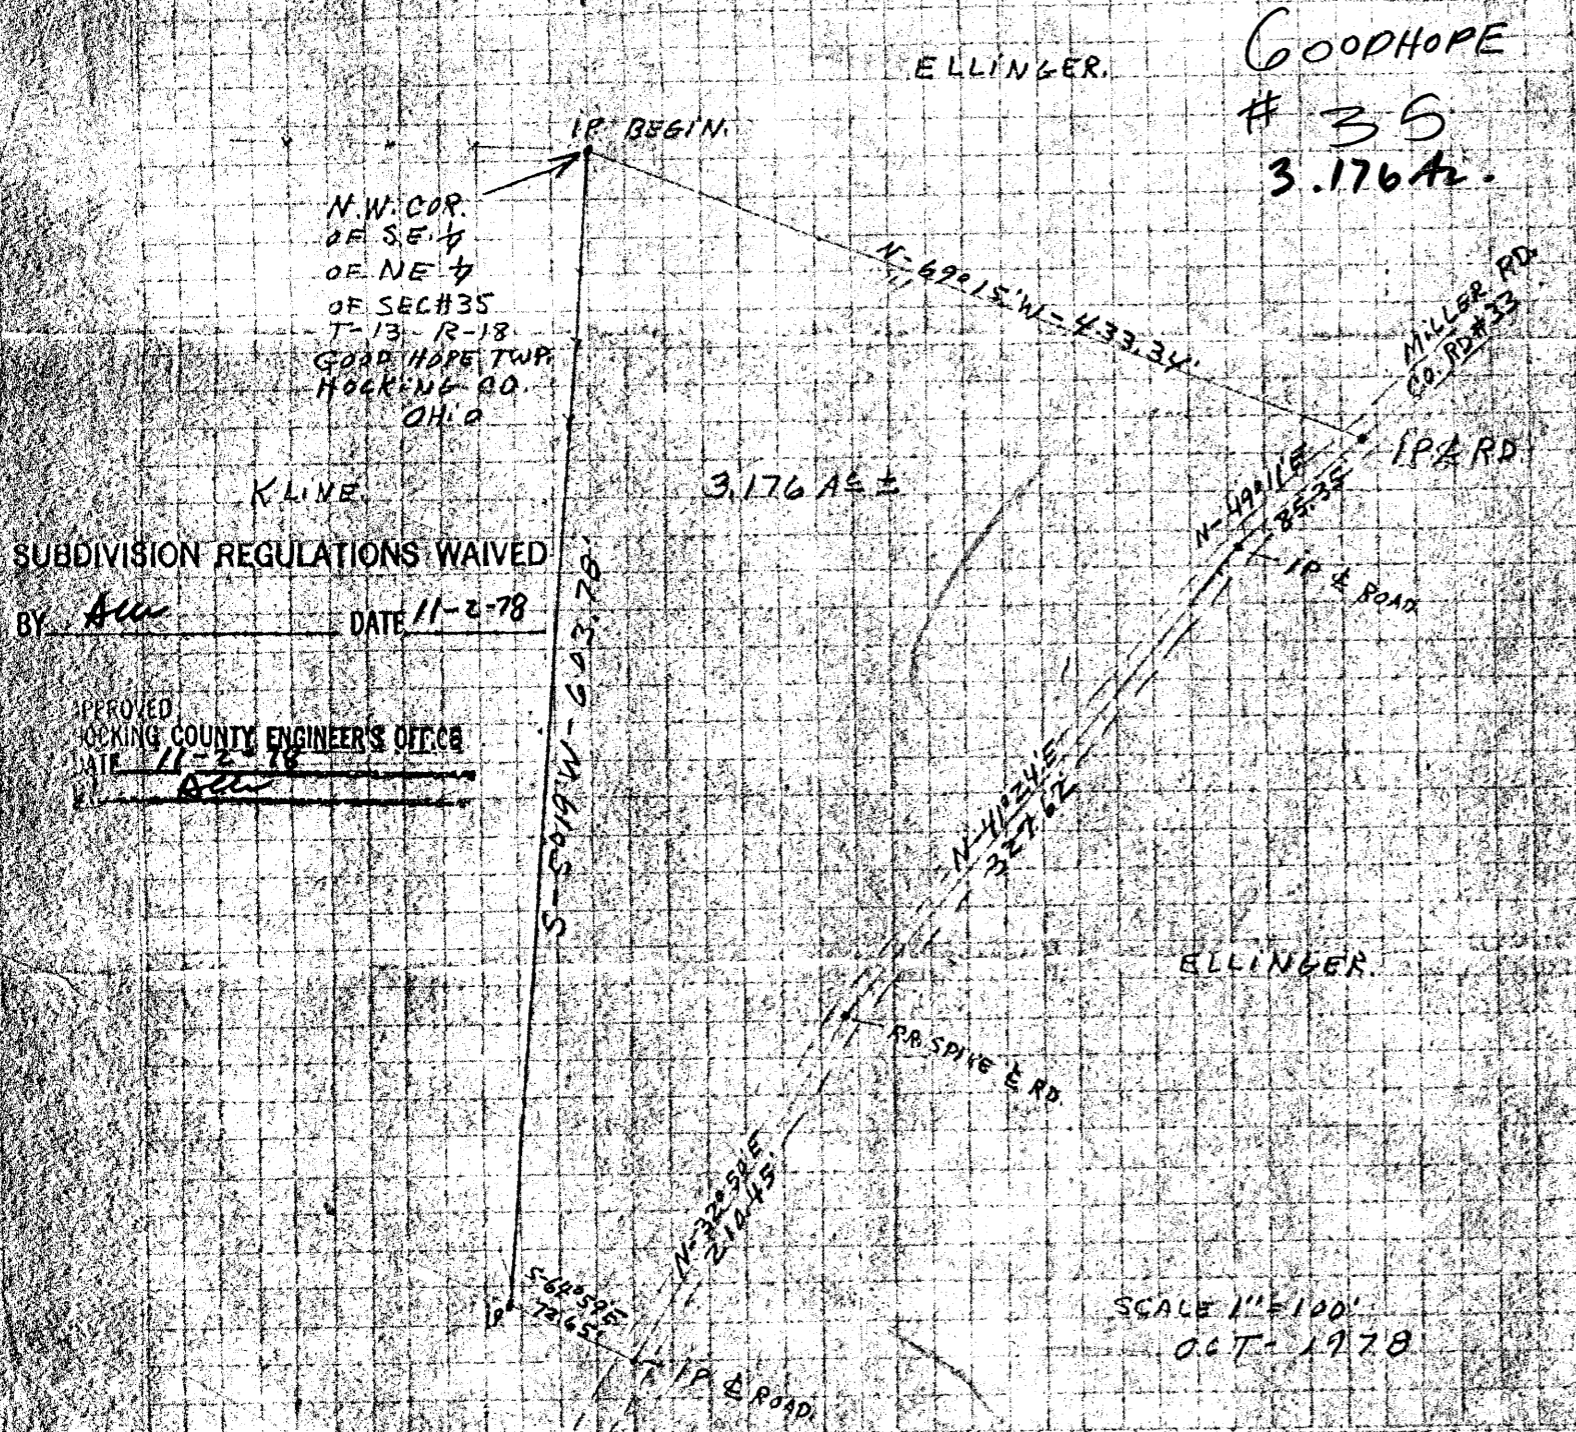 GOODHOPE
# 35
3.176 Ac.
ELLINGER.
IP BEGIN.
N.W. COR.
OF S.E. 1/4
OF NE 1/4
OF SEC#35
T-13-R-18
GOOD HOPE TWP.
HOCKING CO.
OHIO
N-69°15'W-433.34'
MILLER RD.
CO. RD#33
IP ℄ RD.
KLINE.
3.176 Ac ±
N-49°11'E
85.35'
IP ℄ ROAD.
SUBDIVISION REGULATIONS WAIVED
BY DATE 11-2-78
S-5°19'W-603.78'
APPROVED
HOCKING COUNTY ENGINEER'S OFFICE
DATE 11-2-78
BY
N-41°24'E
327.62'
ELLINGER.
R.R. SPIKE ℄ RD.
N-32°50'E
210.45'
IP
72.65'
IP ℄ ROAD.
SCALE 1"=100'
OCT-1978